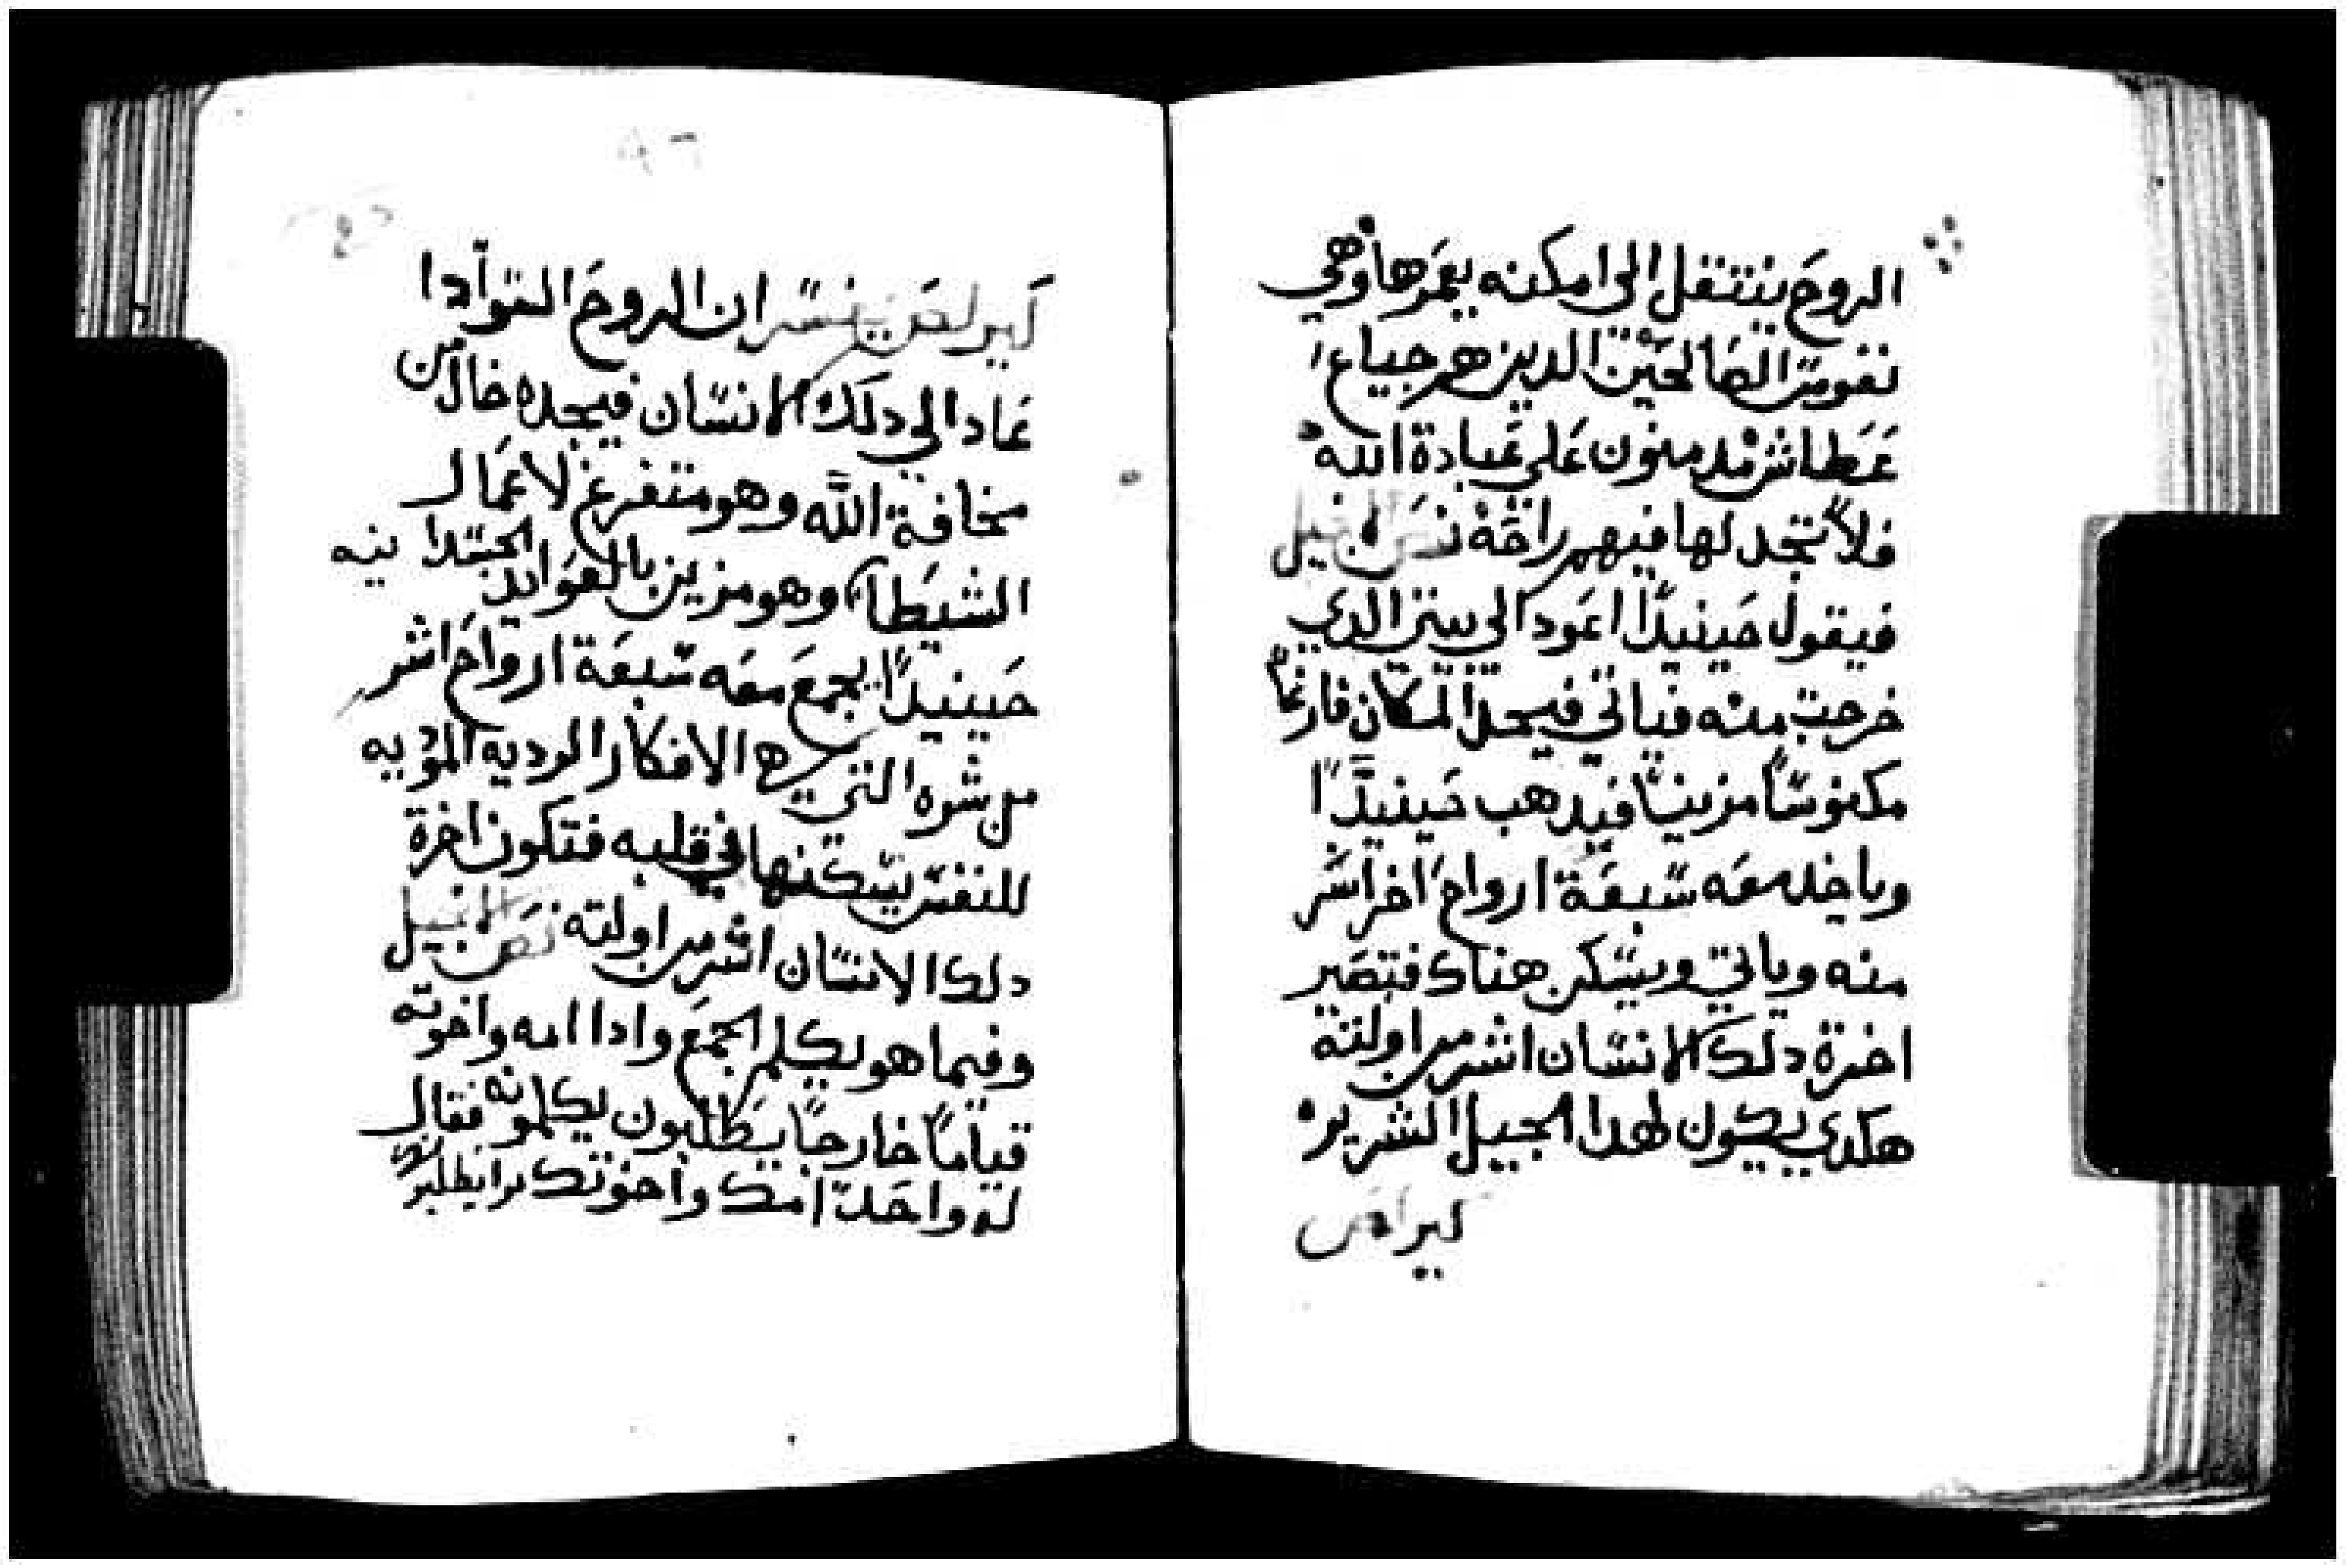 الروح ينتقل الى امكنه يعمرها وهي
نفوس الصالحين الدين هم جياع
عطاش مدمنون على عبادة الله
فلا تجد لها فيهم راحة نص الانجيل
فيقول حينيدًا اعود الى بيتى الدي
خرجت منه فياتي فيجد المكان فارغًا
مكنوسًا مزينًا فيدهب حينيدًا
وياخد معه سبعة ارواح اخر اشر
منه وياتي ويسكن هناك فتصير
اخرة دلك الانسان اشر من اولته
هكدي يكون لهدا الجيل الشرير
كيرلص
كيرلص يفسر ان الروح السوا ادا
عاد الي دلك الانسان فيجده خال من
مخافة الله وهو متفرغ لاعمال
الشيطان وهو مزين بالعوايد الجسدانيه
حينيدًا يجمع معه سبعة ارواح اشر
من شره التي هي الافكار الرديه المؤديه
للنفس يسكنها في قلبه فتكون اخرة
دلك الانسان اشر من اولته نص الانجيل
وفيما هو يكلم الجمع وادا امه واخوته
قيامًا خارجًا يطلبون يكلمونه فقال
له واحد امك واخوتك برا يطلبوك